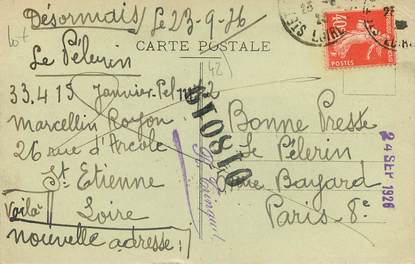 Désormais Le 23-9-26
Le Pèlerin
CARTE POSTALE
42
33.415 Janvier
Marcellin Royon
26 rue d'Arcole
St Etienne
Loire
Voilà
nouvelle adresse:
40c
POSTES
ST LOIRE
010810
Bonne Presse
Le Pèlerin
rue Bayard
Paris-8e
24 SEP 1926